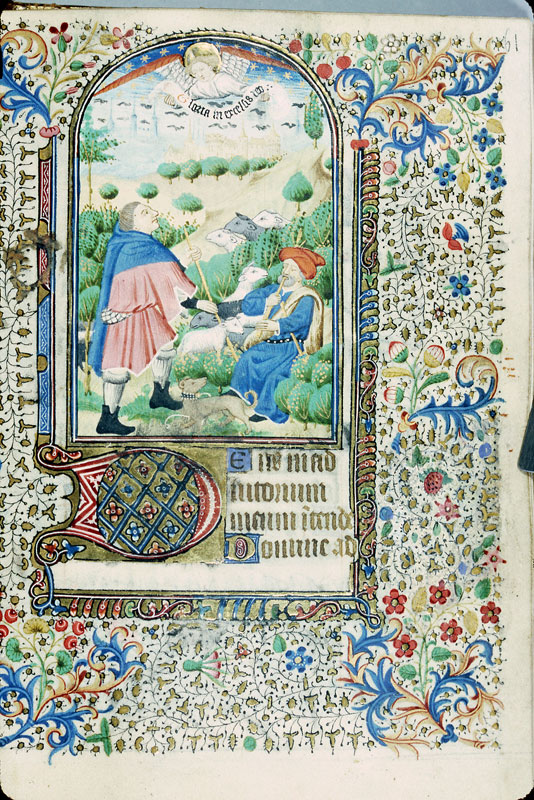 loria in excelsis
Eus in ad
iutorium
meum ītende
Domine ad